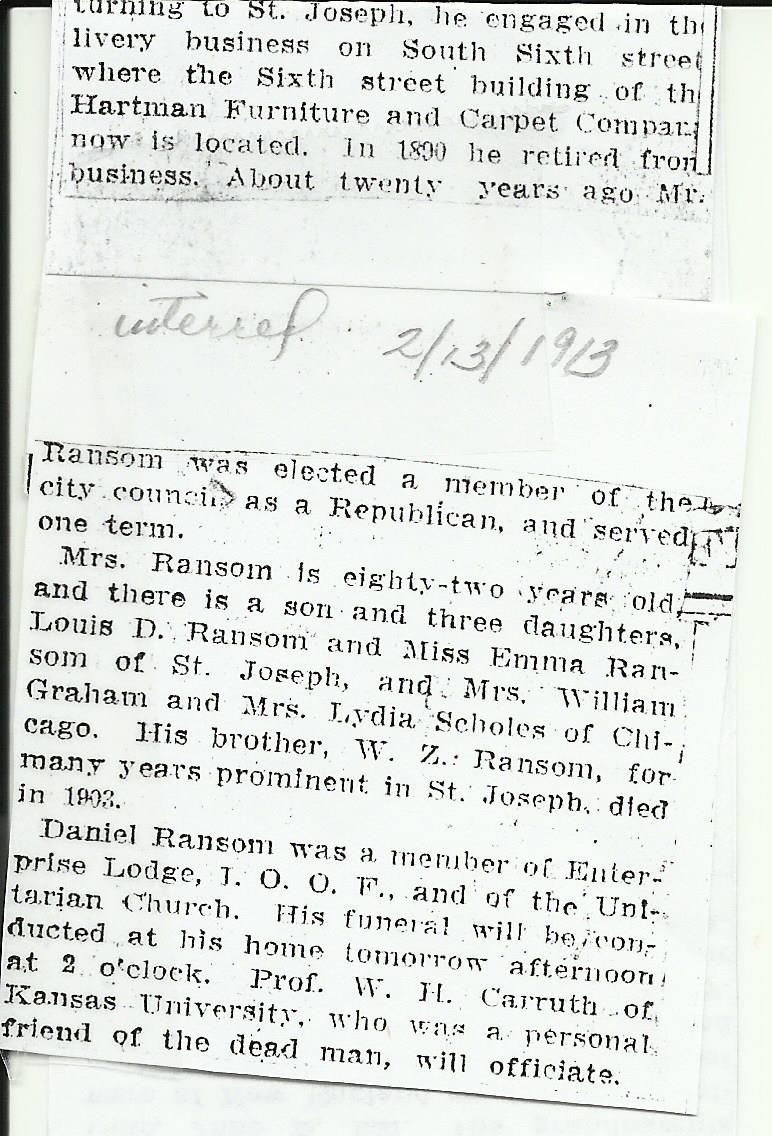 turning to St. Joseph, he engaged in th
livery business on South Sixth street
where the Sixth street building of th
Hartman Furniture and Carpet Compan
now is located. In 1890 he retired from
business. About twenty years ago Mr.
interred 2/13/1913
Ransom was elected a member of the
city council as a Republican, and served
one term.
Mrs. Ransom is eighty-two years old,
and there is a son and three daughters,
Louis D. Ransom and Miss Emma Ran-
som of St. Joseph, and Mrs. William
Graham and Mrs. Lydia Scholes of Chi-
cago. His brother, W. Z. Ransom, for
many years prominent in St. Joseph, died
in 1903.
Daniel Ransom was a member of Enter-
prise Lodge, I. O. O. F., and of the Uni-
tarian Church. His funeral will be con-
ducted at his home tomorrow afternoon
at 2 o'clock. Prof. W. H. Carruth of
Kansas University, who was a personal
friend of the dead man, will officiate.